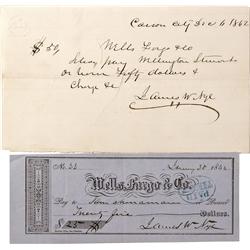 Carson City Dec 6 1862
$50
Wells Fargo & Co
Please pay Wellington Stewart
or bearer Fifty dollars &
Charge &c
James W. Nye
No. 32
January 30 1863
Wells, Fargo & Co.
Pay to or Bearer
Twenty five Dollars,
$25
James W. Nye